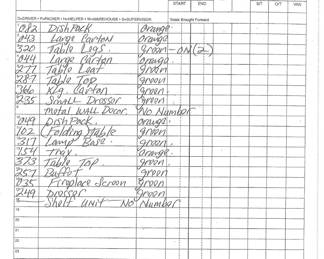 START END S/T O/T WW
D=DRIVER • P=PACKER • H=HELPER • W=WAREHOUSE • S=SUPERVISOR Totals Brought Forward
082 Dishpack orange
043 Large Carton orange.
320 Table Legs green - ON (2)
044 Large Carton orange.
277 Table Leaf green
287 Table Top green.
366 Xlg. Carton green.
235 Small Dresser green
metal wall Decor. No Number
049 DishPack. orange.
702 (Folding table green
317 Lamp Base. green.
154 Tray. orange.
373 Table Top. green.
257 Buffet green
035 Fireplace Screen green
249 Dresser green
Shelf unit - No Number